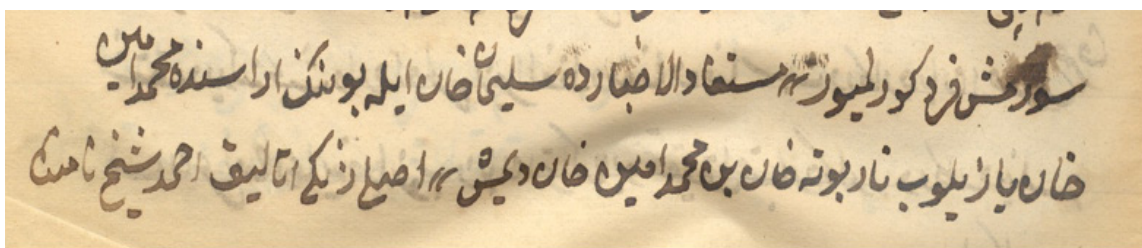 سورمش فرد کورلمیور〃 مستفاد الاخبارده سلیمان خان ایله بوننک اراسنده محمد امین
خان یازیلوب ناربوته خان بن محمد امین خان دیمش〃 اصیل ازبکی اتالیق احمد شیخ نامنده